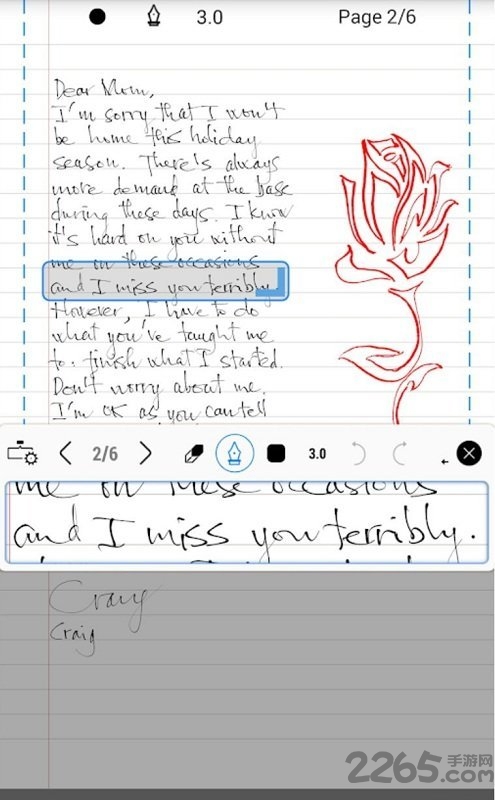 3.0 Page 2/6
Dear Mom,
I'm sorry that I won't
be home this holiday
season. There's always
more demand at the base
during these days. I know
it's hard on you without
me on these occasions
and I miss you terribly.
However, I have to do
what you've taught me
to. finish what I started.
Don't worry about me.
I'm OK as you can tell
2/6 3.0
me on these occasions
and I miss you terribly.
Craig
Craig
2265.com 手游网